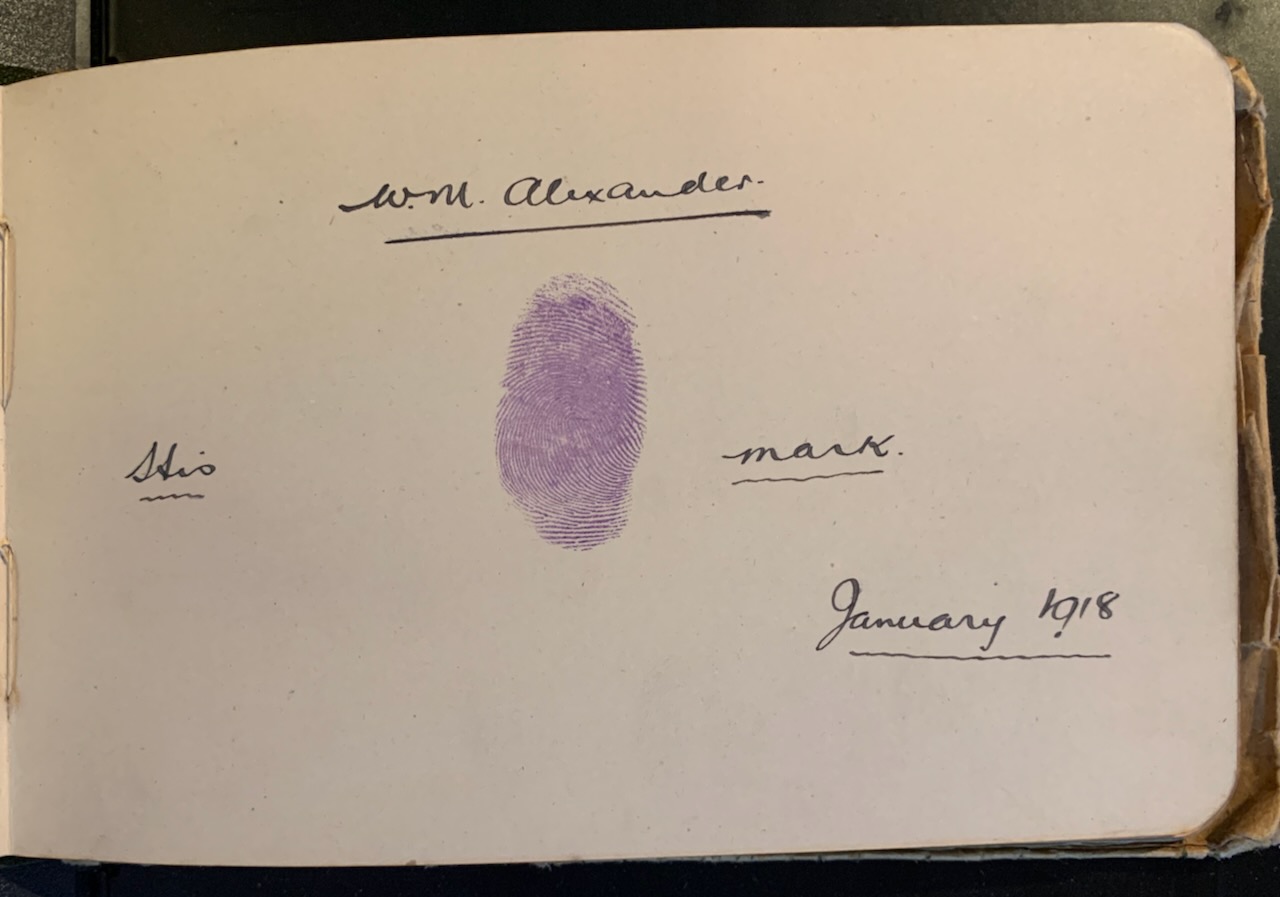 W.M. Alexander.
His mark.
January 1918